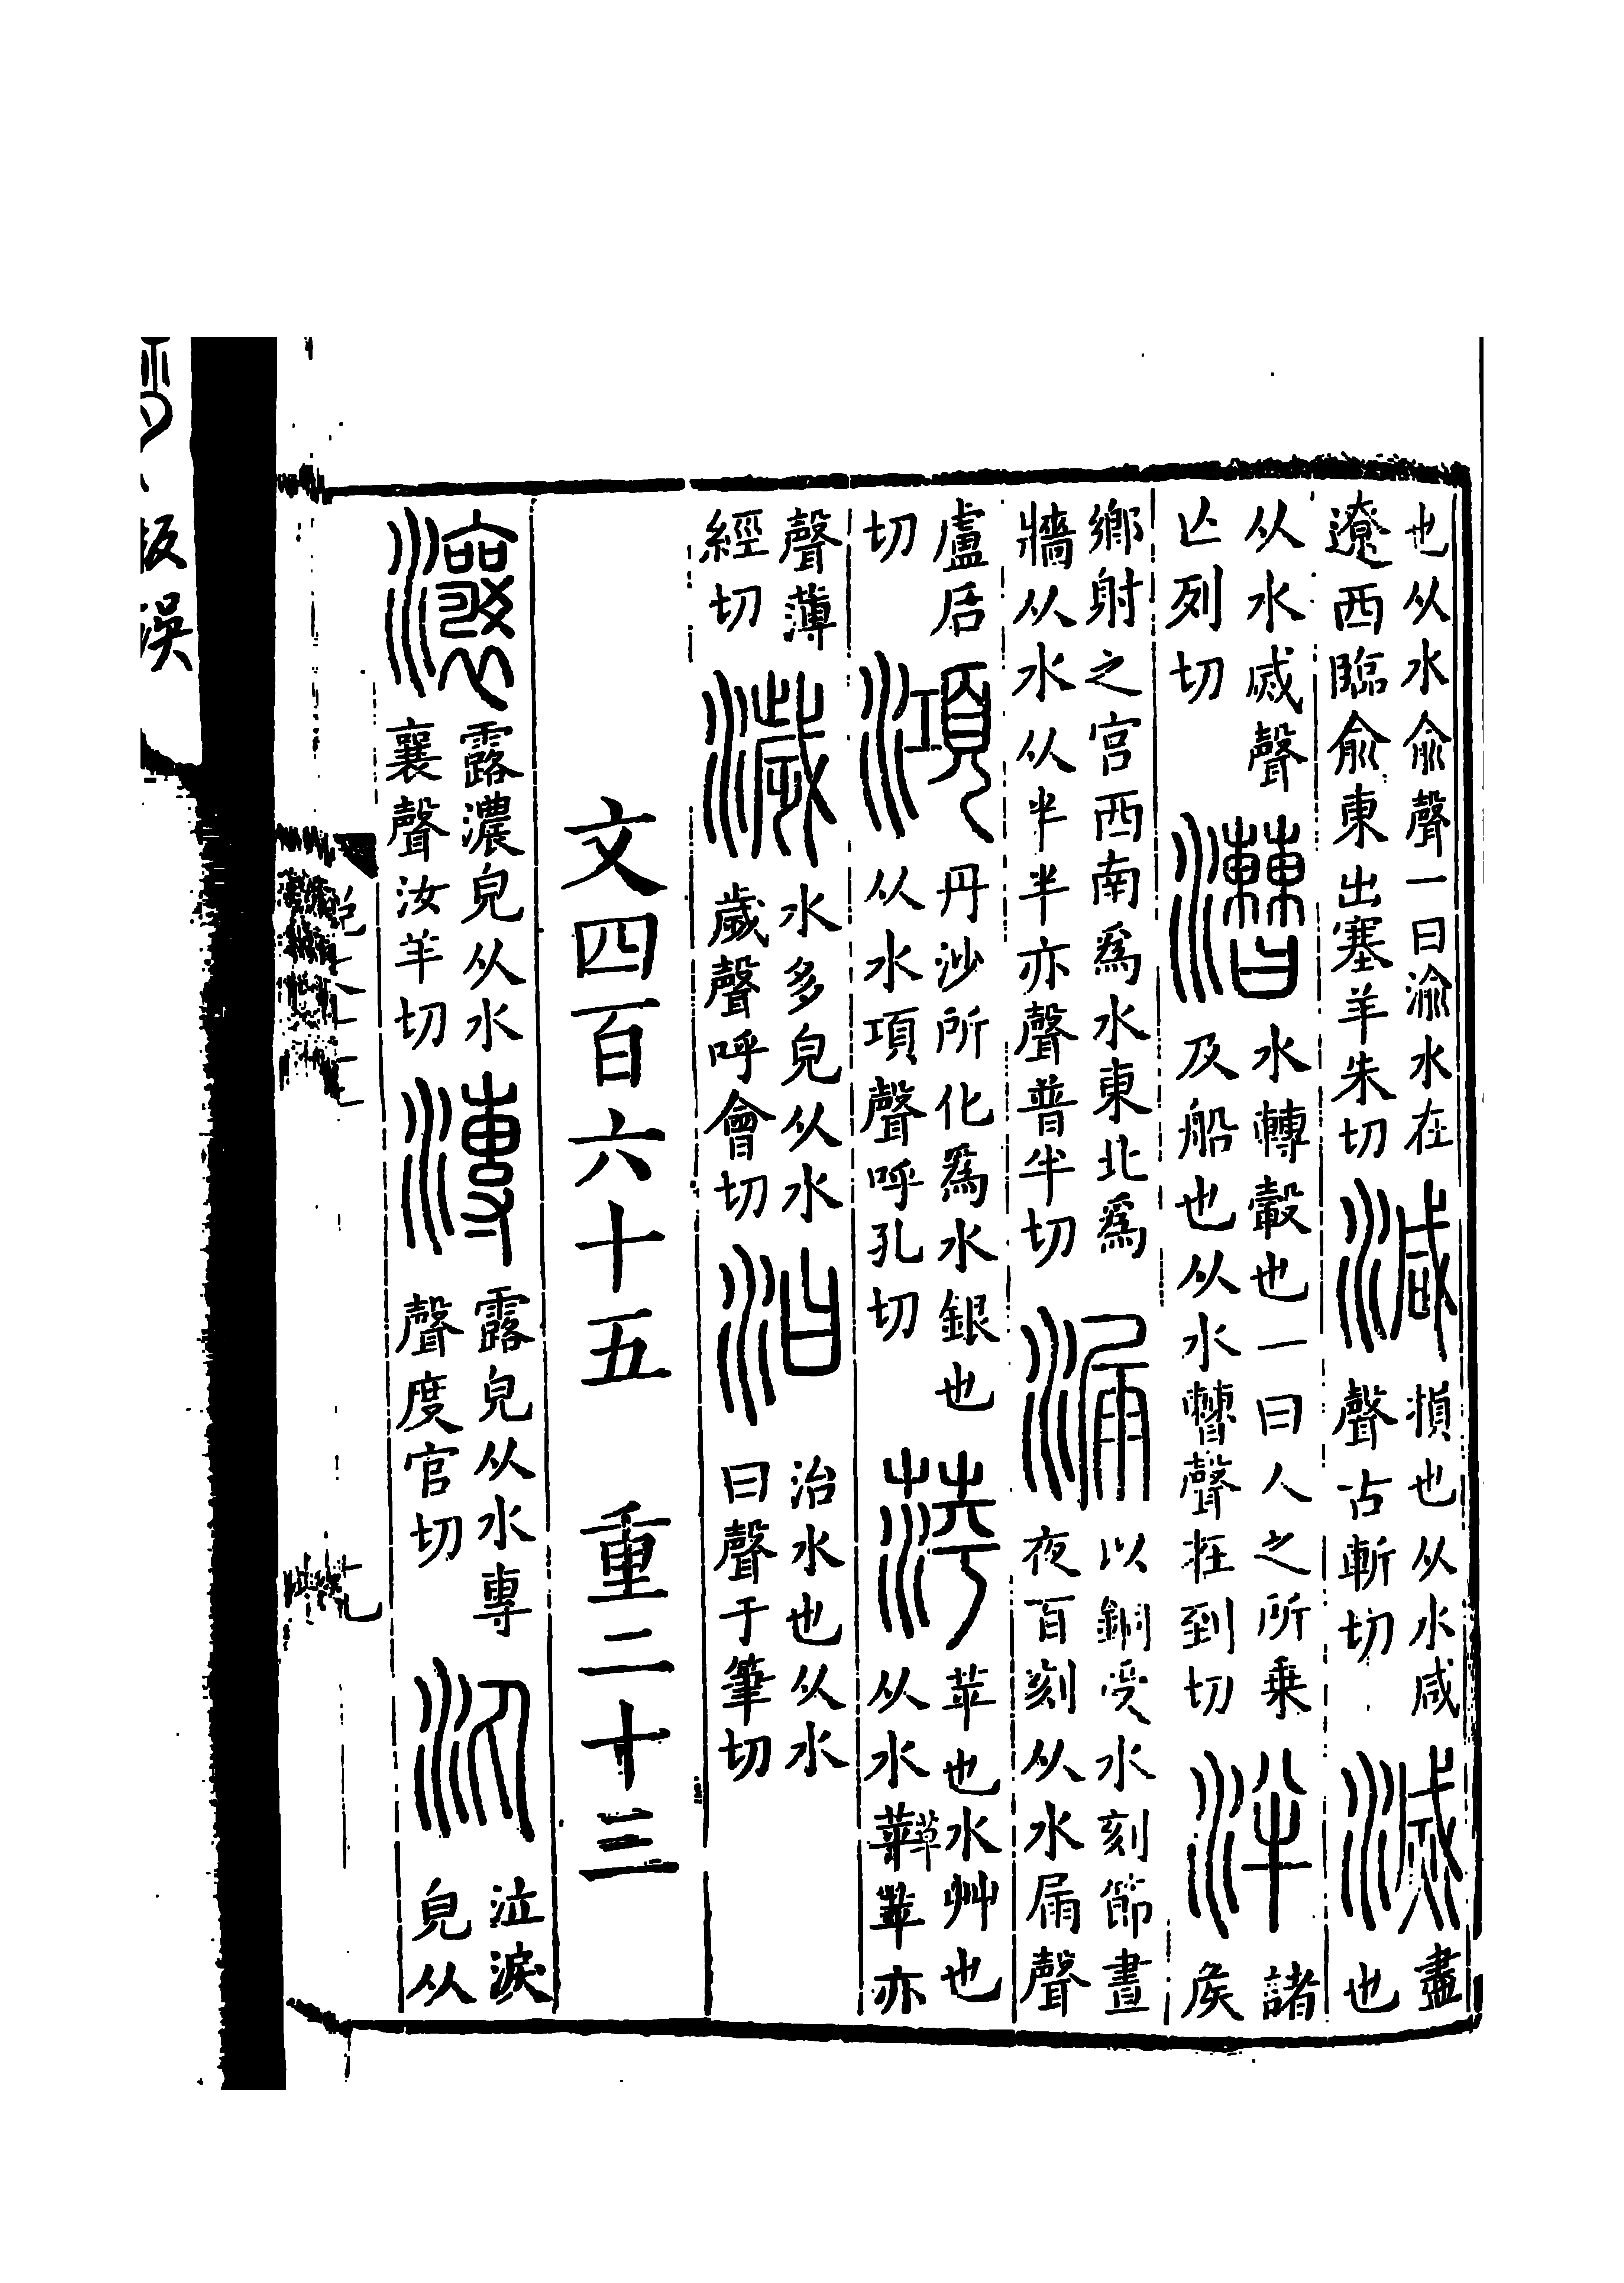 也从水俞聲一曰渝水在遼西臨俞東出塞羊朱切 減 損也从水咸聲古斬切 滅 盡也
从水烕聲亾列切 漕 水轉轂也一曰人之所乗及船也从水𣍘聲在到切 泮 諸矦
鄉射之宫西南爲水東北爲牆从水从半半亦聲普半切 漏 以銅受水刻節晝夜百刻从水屚聲
盧后切 澒 丹沙所化爲水銀也从水項聲呼孔切 萍 苹也水艸也从水苹苹亦
聲薄經切 濊 水多皃从水歲聲呼會切 汩 治水也从水曰聲于筆切
文四百六十五 重二十三
瀼 露濃皃从水襄聲汝羊切 漙 露皃从水專聲度官切 汍 泣淚皃从